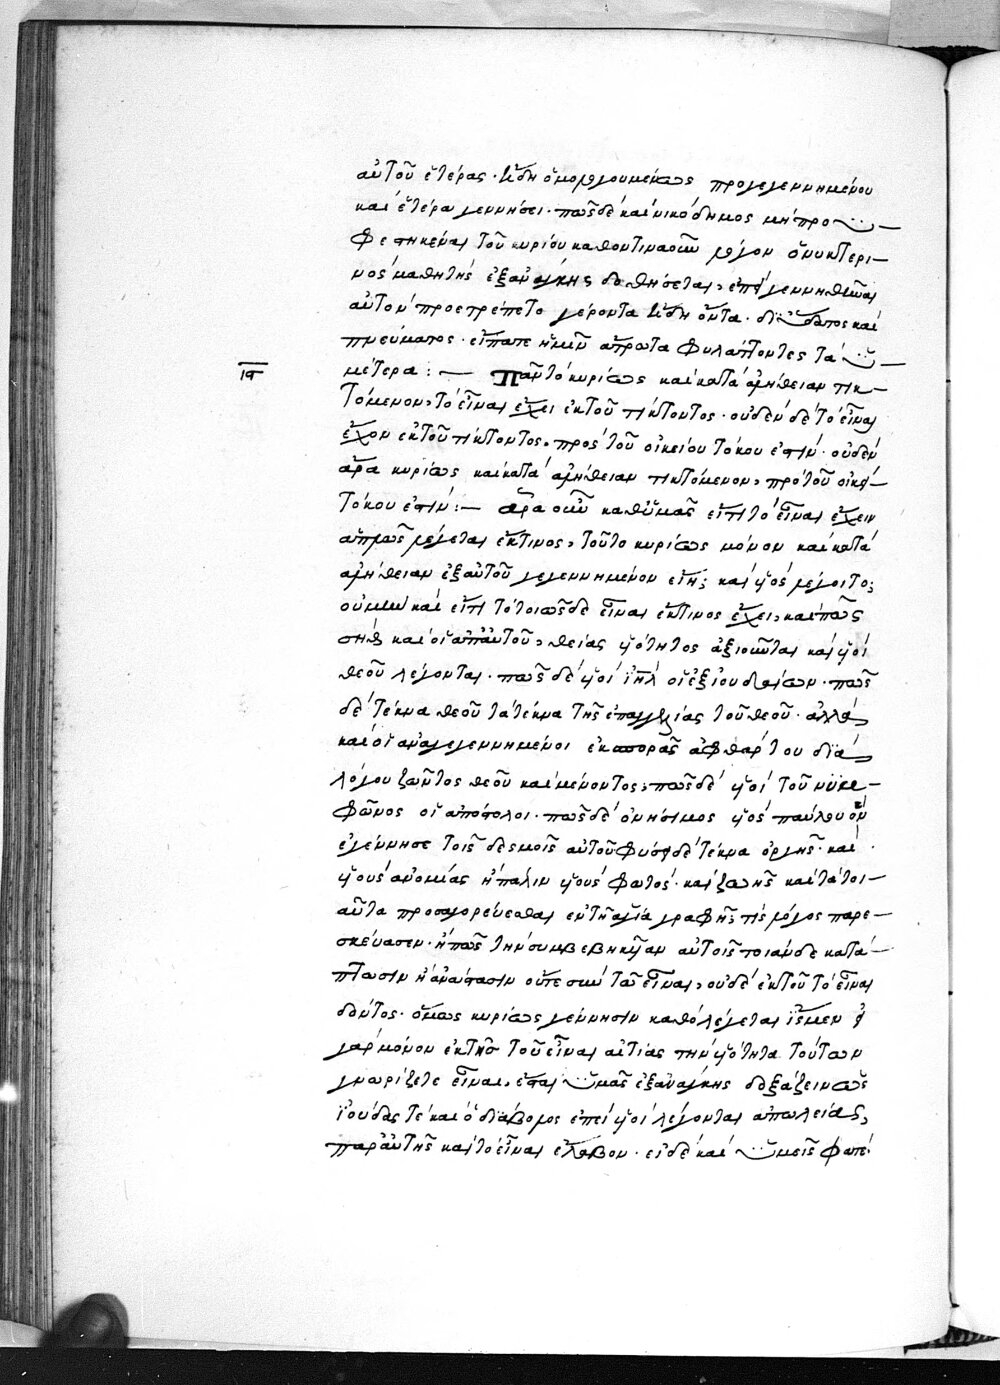 αὐτοῦ ἑτέρας· ἤδη ὁμολογουμένως προγεγεννημένου
καὶ ἑτέρα γεννήσει· πῶς δὲ καὶ νικόδημος μὴ προ
τοῦ κυρίου καθ' ὁντιναοῦν λόγον ὁ νυκτερι-
νὸς μαθητὴς ἐξ ἀνάγκης δοθήσεται, γεννηθῆναι
αὐτὸν προετρέπετο γέροντα ἤδη ὄντα· δι' ὕδατος καὶ
πνεύματος· εἴπατε ἡμῖν φυλάττοντες τὰ ὑ-
μέτερα :—  Πᾶν τὸ κυρίως καὶ κατὰ ἀλήθειαν τικ-
ιϛ
τόμενον, τὸ εἶναι ἔχει ἐκ τοῦ τίκτοντος· οὐδὲν δὲ τὸ εἶναι
ἔχον ἐκ τοῦ τίκτοντος, πρὸ τοῦ οἰκείου τόκου ἐστίν· οὐδὲν
ἄρα κυρίως καὶ κατὰ ἀλήθειαν τικτόμενον, πρὸ τοῦ οἰκείου
τόκου ἐστίν :— ἆρα οὖν καθ' ὑμᾶς εἴ τι τὸ εἶναι ἔχειν
ἁπλῶς λέγεται ἔκ τινος, τοῦτο κυρίως μόνον καὶ κατὰ
ἀλήθειαν ἐξ αὐτοῦ γεγεννημένον εἴη; καὶ υἱὸς λέγοιτο;
οὐμενοῦν καὶ εἴ τι τὸ τοιῶσδε εἶναι ἔκ τινος ἔχει, καὶ πῶς
σὴθ καὶ οἱ ἀπ' αὐτοῦ, θείας υἱότητος ἀξιοῦνται καὶ υἱοὶ
θεοῦ λέγονται· πῶς δὲ υἱοὶ ἰηλ οἱ ἐξ ἰουδαίων· πῶς
δὲ τέκνα θεοῦ τὰ τέκνα τῆς ἐπαγγελίας τοῦ θεοῦ· ἀλλὰ
καὶ οἱ ἀναγεγεννημένοι ἐκ σπορᾶς ἀφθάρτου διὰ
λόγου ζῶντος θεοῦ καὶ μένοντος, πῶς δὲ υἱοὶ τοῦ νυμ-
φῶνος οἱ ἀπόστολοι· πῶς δὲ ὀνήσιμος υἱὸς παύλου ὃν
ἐγέννησε τοῖς δεσμοῖς αὐτοῦ φύσει δὲ τέκνα ὀργῆς· καὶ
υἱοὺς ἀνομίας ἢ πάλιν υἱοὺς φωτός· καὶ ζωῆς καὶ τὰ τοι-
αῦτα προσαγορεύεσθαι ἐν τῇ ἁγίᾳ γραφῇ τίς λόγος παρε-
σκεύασεν· ἢ πῶς τὴν συμβεβηκυῖαν αὐτοῖς τοιάνδε κατά-
πτωσιν ἢ ἀνάστασιν οὔτε σὺν τῷ εἶναι, οὐδὲ ἐκ τοῦ τὸ εἶναι
δόντος· ὅμως κυρίως γέννησιν καθὸ λέγεται ἴσμεν εἰ
γὰρ μόνον ἐκ τῆς τοῦ εἶναι αἰτίας τὴν υἱότητα τούτων
γνωρίζετε εἶναι, ὑμᾶς ἐξ ἀνάγκης δοξάζειν ὡς
ἰούδας τε καὶ ὁ διάβολος ἐπεὶ υἱοὶ λέγονται ἀπωλείας,
παρ' αὐτῆς καὶ τὸ εἶναι ἔλαβον· εἰ δὲ καὶ ὑμεῖς φατὲ